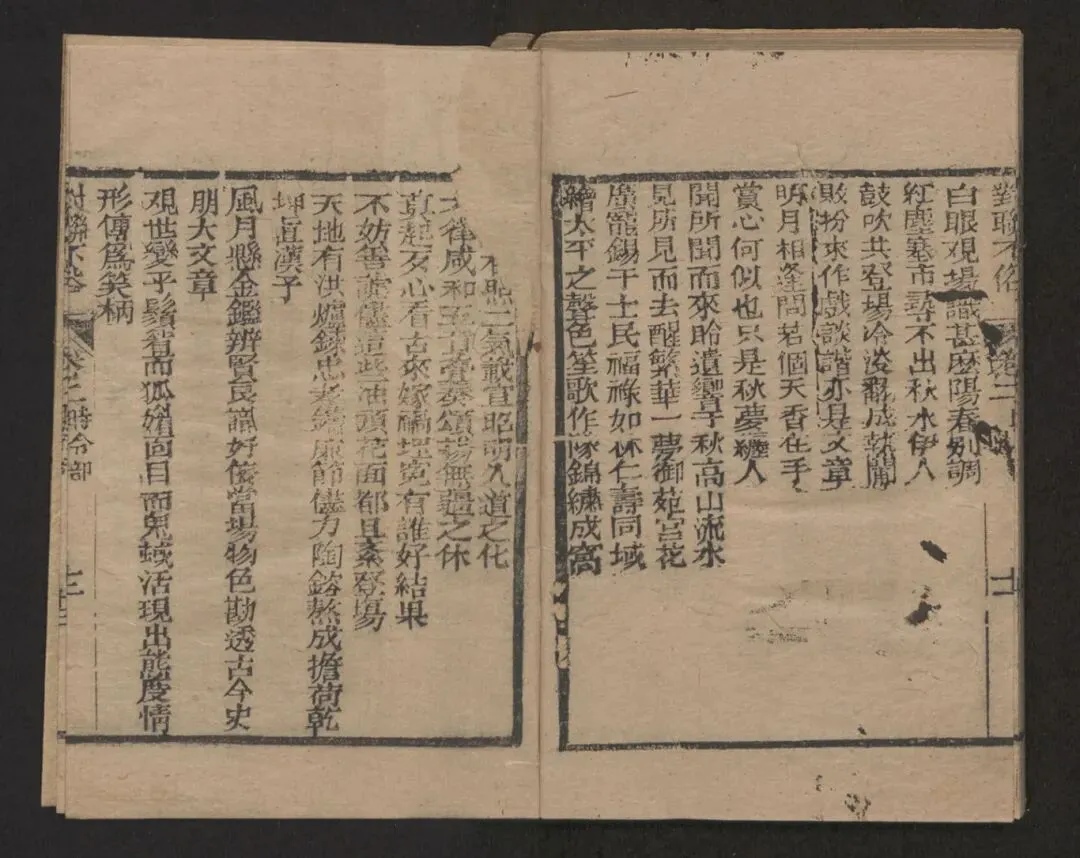 對聯不俗 卷二
白眼观場識甚麽陽春別調
紅塵塞市尋不出秋水伊人
鼓吹共登場冷淡翻成熱閙
敗粉來作戲談諧亦是文章
明月相逢問若個天香在手
賞心何似也只是秋夢纏人
聞所聞而來聆遺響于秋高山流水
見所見而去醒繁華一夢御苑宮花
廣寵錫于士民福祿如休仁壽同域
繪太平之聲色笙歌作隊錦繡成窩
二氣載宣昭明人道之化
律咸和 疊奏頌揚無疆之休
真 歹心看古來嫁禍埋寃有誰好結果
不妨善 儘這些油頭花面都且紊登塲
天地有洪爐錄忠孝鑄廉節儘力陶鎔熬成擔荷乾
坤眞漢子
風月縣金鑑辨賢良 好佞當場物色勘透古今史
朋大文章
观世變乎鬚眉而狐媚面目而鬼蜮活現出態度情
形傳爲笑柄
對聯不俗 卷之二時令部 十二